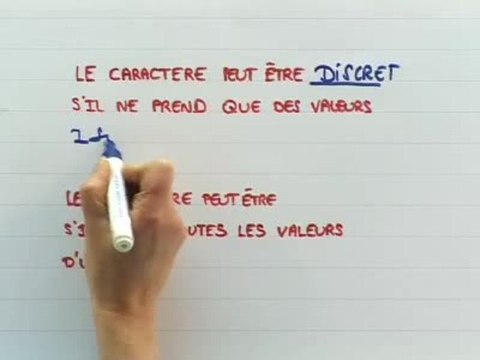 LE CARACTERE PEUT ÊTRE DISCRET
S'IL NE PREND QUE DES VALEURS
LE RE PEUT ÊTRE
S'I UTES LES VALEURS
D'U